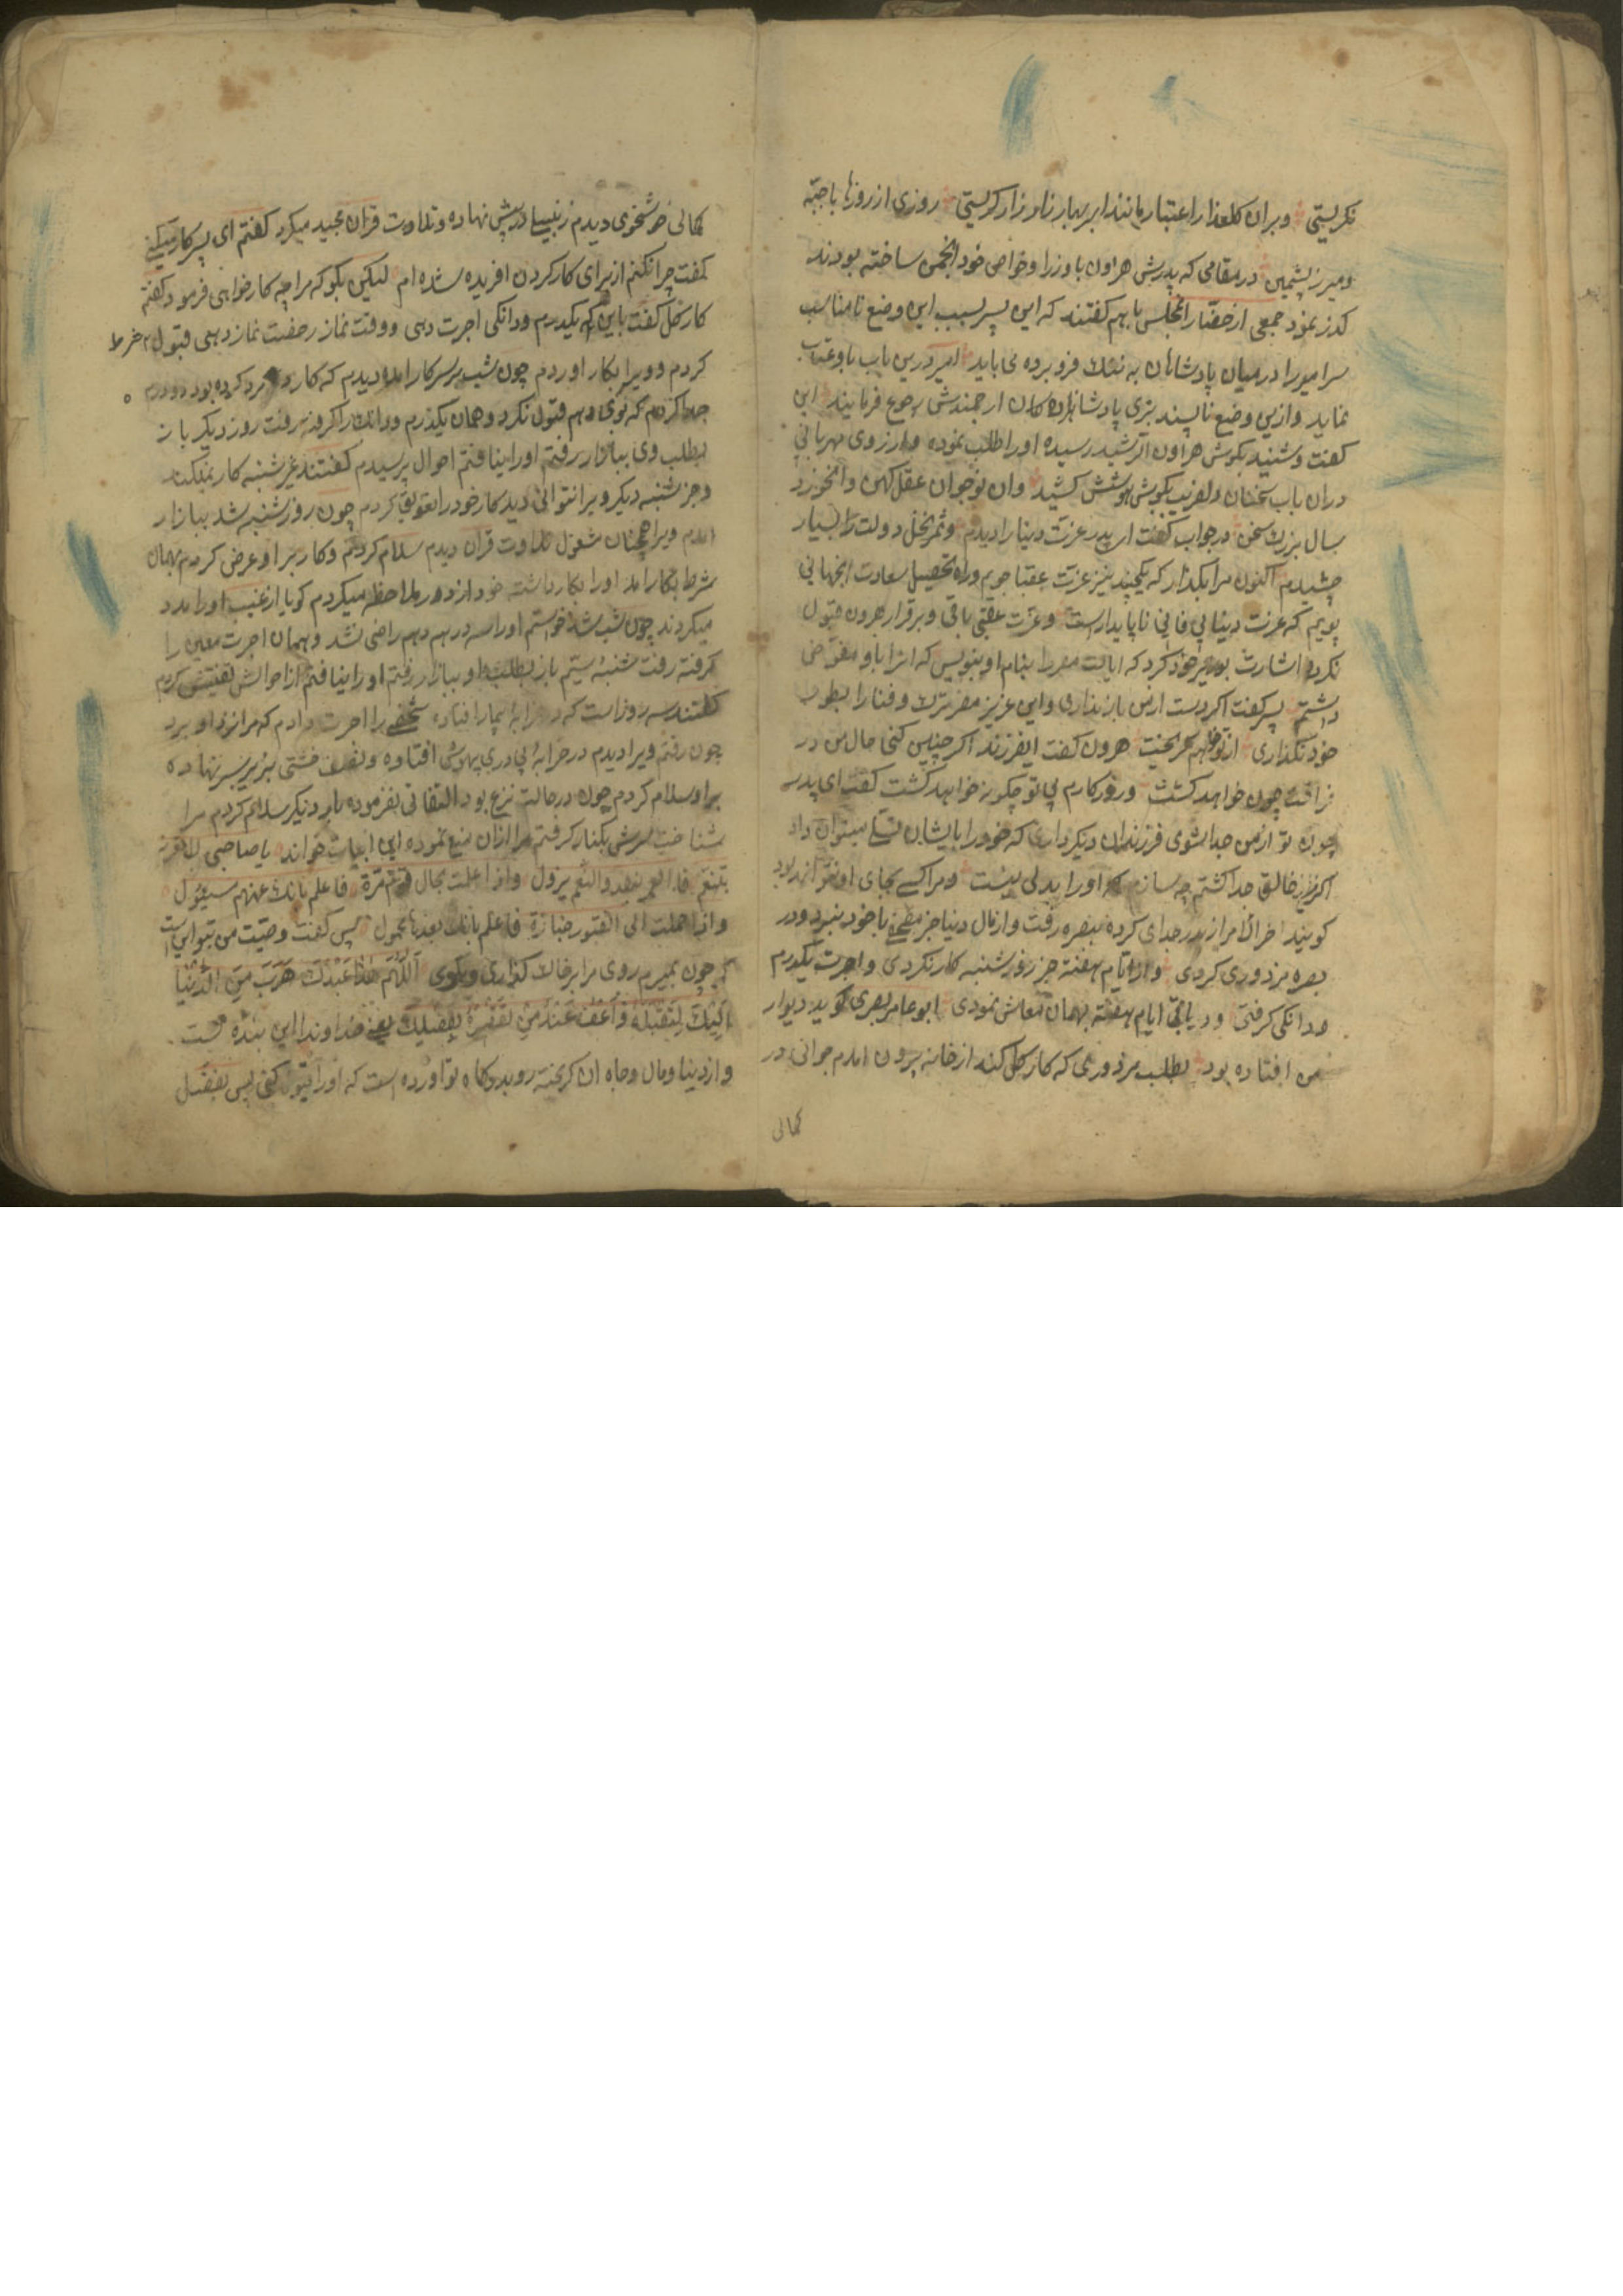 نکریستی وبران کلعذار اعتبار مانند ابر بهار زار وزار کریستی روزی از روزها باجبّه
ومیرز پشمین در مقامی که پدرش هرون با وزرا وخواص خود انجمن ساخته بودند
کذر نمود جمعی از حضّار انمجلس با هم کفتند که این پسر بسبب این وضع نامناسب
سر امیر را در میان پادشاهان به ننک فرو برده می باید امیر درین باب باو عتاب
نماید وازین وضع ناپسند بزی پادشاهزاده کان ارجمندش رجوع فرمایند این
کفت وشنید بکوش هرون الرشید رسیده اورا طلب نموده واز روی مهربانی
دران باب سخنان دلفریب بکوش هوشش کشید وان نوجوان عقل کهن وانخورد
سال بزرک سخن در جواب کفت ای پدر عزت دینا را دیدم وثمر نخل دولت را بسیار
چشیدم اکنون مرا بکذار که یکچند نیز عزت عقبا جویم وراه تحصیل سعادت انجهانی
پویم که عزت دینایی فانی ناپایدارست وعزت عقبی باقی وبرقرار هرون قبول
نکرده اشارت بوزیر خود کرد که ایالت مصر را بنام او بنویس که انرا باو مفوّض
داشتم پسر کفت اکر دست ازمن بازنداری واین عزیز مصر ترک وفنا را بطور
خود نکذاری از تو خواهم کریخت هرون کفت ایفرزند اکر چنین کنی حال من در
فراقت چون خواهد کشت وروزکارم بی تو چکونه خواهد کشت کفت ای پدر
چون تو ازمن جدا شوی فرزندان دیکر داری که خود را بایشان تسلی میتوان داد
اکر من از خالق جدا کشتم چه سازم که اورا بدلی نیست ومرا کسی بجای او نتواند بود
کویند اخر الامر از پدر جدای کرده ببصره رفت واز مال دینا جز مصحفی با خود نبرد ودر
بصره مزدوری کردی واز ایام هفته جز روز شنبه کار نکردی واجرت یکدرم
ودانکی کرفتی ودر باقی ایام هفته بهمان معاش نمودی ابو عامر بصری کوید دیوار
من افتاده بود بطلب مزدوری که کار کل کند از خانه بیرون امدم جوانی در
کمالی
کمالی خوشخوی دیدم زنبیلی در پیش نهاده وتلاوت قران مجید میکرد کفتم ای پسر کار میکنی
کفت چرا نکنم از برای کار کردن افریده شده ام لیکن بکو که مرا چه کار خواهی فرمود کفتم
کار کل کفت باین که یکدرم ودانکی اجرت دهی ووقت نماز رخصت نماز دهی قبول شرط
کردم وویرا بکار اوردم چون شب بر سر کار امده دیدم که کار مرد کرده بود دودرم
جدا کردم که بوی دهم قبول نکرد وهمان یکدرم ودانک را کرفته رفت روز دیکر باز
بطلب وی ببازار رفتم اورا نیافتم احوال پرسیدم کفتند غیر شنبه کار نمیکند
وجز شنبه دیکر ویرا نتوانی دید کار خود را تعویق کردم چون روز شنبه شد ببازار
امدم ویرا همچنان مشغول تلاوت قران دیدم سلام کردم وکار بر او عرض کردم بهمان
شرط بکار امد اورا بکار داشته خود از دور ملاحظه میکردم کویا از غیب اورا مدد
میکردند چون شب شد خواستم اورا سه درهم دهم راضی نشد وهمان اجرت معین را
کرفته رفت شنبۀ سیّم باز بطلب او ببازار رفتم اورا نیافتم از احوالش تفتیش کردم
کفتند سه روز است که در خرابۀ بیمار افتاده شخصی را اجرت دادم که مرا نزد او برد
چون رفتم ویرا دیدم در خرابۀ بی در بیهوش افتاده ونصف خشتی بزیر سر نهاده
براو سلام کردم چون در حالت نزع بود التفاتی نفرموده بار دیکر سلام کردم مرا
شناخت سرش بکنار کرفتم مرا ازان منع نموده این ابیات خواند یا صاحبی لا تغترر
بتنعّم فالعمر ینفد والنعیم یزول واذا علمت بحال قوم مرّة فاعلم بانک عنهم مسئول
واذا حملت الی القبور جنازة فاعلم بانک بعدها محمول پس کفت وصیّت من بتو این است
که چون بمیرم روی مرا بر خاک کذاری وبکوی اللّهمّ هذا عبدک هرب من الدّنیا
الیک لتقبله یعنی خداوندا این بنده تست
واز دینا ومال وجاه ان کریخته روبدرکاه تو اورده است که اورا قبول کنی پس بفضل